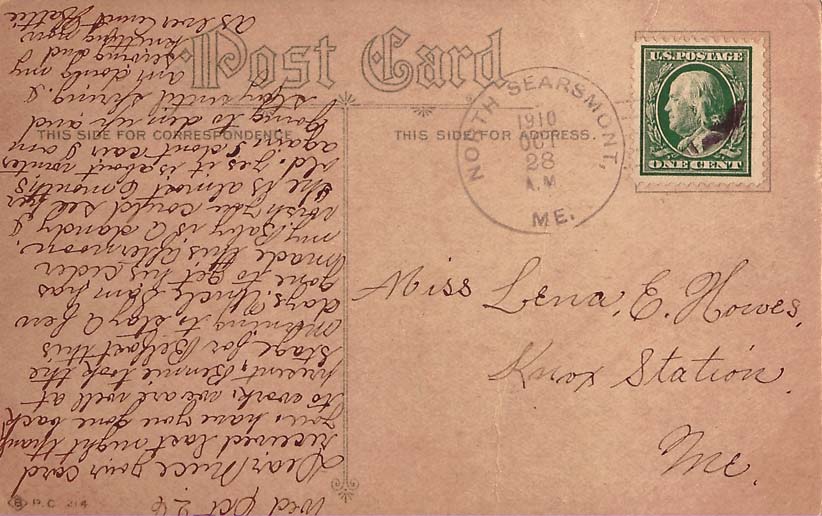 Post Card
THIS SIDE FOR CORRESPONDENCE
THIS SIDE FOR ADDRESS.
NORTH SEARSMONT,
1910
OCT
28
A.M.
ME.
U.S. POSTAGE
ONE CENT
Miss Lena, E. Howes,
Knox Station
Me.
P.C. 214
Wed Oct 26
Dear Niece your card
received last night thank
you, have you gone back
to work, we are well at
present, Bennie took the
stage for Belfast this
morning to stay a few
days. Uncle Sam has
gone to get his cider
made this afternoon.
my Baby is a dandy I
wish you could see her
she is almost 6 months
old. yes it is about winter
again I dont care I am
going to den up and
stay until spring. I
am doing my
sewing and
knitting now
as ever aunt
Bettie